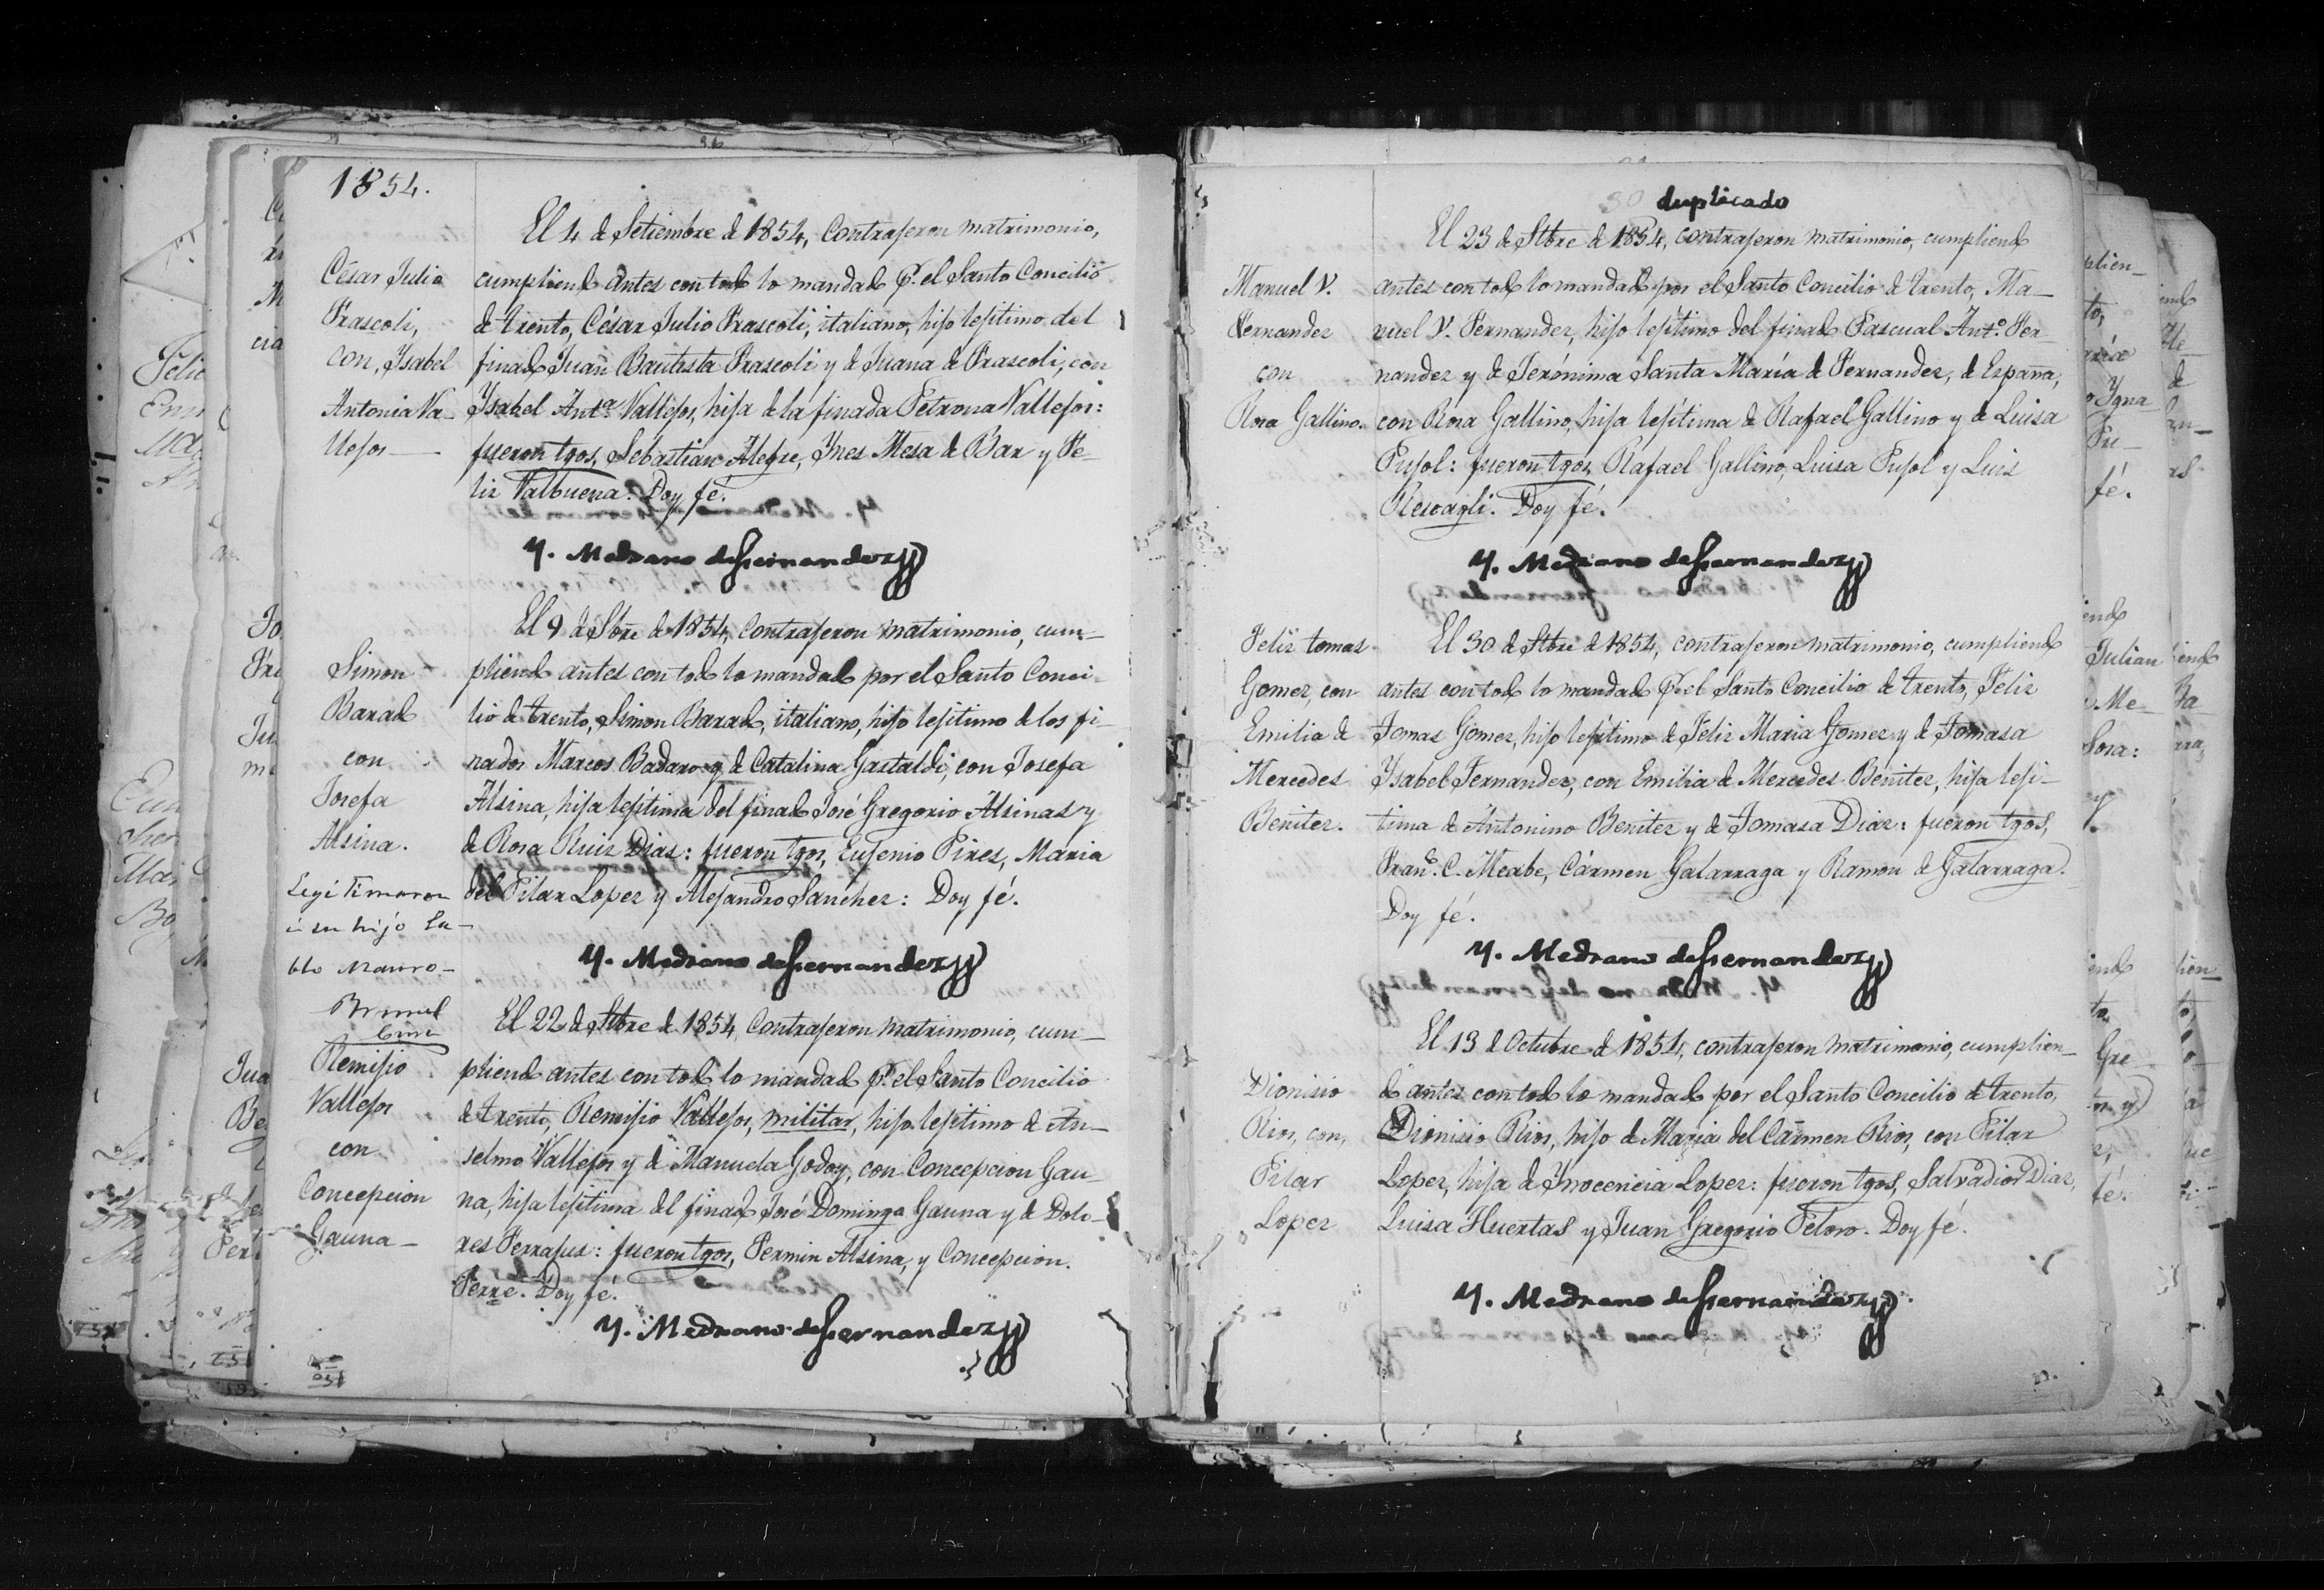 1854.
El 4 de Setiembre de 1854, contrajeron matrimonio,
César Julio
Frascoli,
con, Ysabel
Antonia Va-
llejos —
cumpliendo antes con todo lo mandado p.r el Santo Concilio
de trento, César Julio Frascoli, italiano, hijo lejitimo del
finado Juan Bautista Frascoli y de Juana de Frascoli, con
Ysabel Ant.a Vallejos, hija de la finada Petrona Vallejos:
fueron tgos, Sebastian Alegre, Ynes Mesa de Bar y Fe-
liz Valbuena. Doy fé.
Y. Medrano de Hernandez
El 9 de Sbre de 1854, contrajeron matrimonio, cum-
Simon
Barado
con
Josefa
Alsina.
pliendo antes con todo lo mandado por el Santo Conci-
lio de trento, Simon Barado, italiano, hijo lejitimo de los fi-
nados Marcos Badaro y de Catalina Gastaldi, con Josefa
Alsina, hija lejítima del finado José Gregorio Alsinas y
de Rosa Ruiz Dias: fueron tgos, Eujenio Pires, Maria
del Pilar Lopez y Alejandro Sanchez: Doy fé.
Legitimaron
á su hijo Pa-
blo Mauro-
Y. Medrano de Hernandez
El 22 de Stbre de 1854, contrajeron matrimonio, cum-
Remijio
Vallejos
con
Concepcion
Gauna —
pliendo antes con todo lo mandado p.r el Santo Concilio
de trento, Remijio Vallejos, militar, hijo lejitimo de An-
selmo Vallejos y de Manuela Godoy, con Concepcion Gau-
na, hija lejitima del finado José Domingo Gauna y de Dolo-
res Ferrajus: fueron tgos, Fermin Alsina, y Concepcion
Ferré. Doy fé.
Y. Medrano de Hernandez
duplicado
El 23 de Stbre de 1854, contrajeron matrimonio, cumpliendo
Manuel V.
Fernandez
con
Rosa Gallino.
antes con todo lo mandado por el Santo Concilio de trento, Ma-
nuel V. Fernandez, hijo lejítimo del finado Pascual Ant.o Fer-
nandez y de Jerónima Santa María de Fernandez, de España,
con Rosa Gallino, hija lejítima de Rafael Gallino y de Luisa
Pujol: fueron tgos, Rafael Gallino, Luisa Pujol y Luis
Rescagli. Doy fé.
Y. Medrano de Hernandez
El 30 de Stbre de 1854, contrajeron matrimonio, cumpliendo
Feliz tomas
Gomez, con
Emilia de
Mercedes
Benitez.
antes con todo lo mandado p.r el Santo Concilio de trento, Feliz
Tomas Gomez, hijo lejítimo de Feliz Maria Gomez y de Tomasa
Ysabel Fernandez, con Emilia de Mercedes Benitez, hija leji-
tima de Antonino Benitez y de Tomasa Diaz: fueron tgos,
Fran.co C. Meabe, Cármen Galarraga y Ramon de Galarraga.
Doy fé.
Y. Medrano de Hernandez
El 13 de Octubre de 1854, contrajeron matrimonio, cumplien-
Dionisio
Rios, con,
Pilar
Lopez
do antes con todo lo mandado por el Santo Concilio de trento,
Dionisio Rios, hijo de Maria del Cármen Rios, con Pilar
Lopez, hija de Ynocencia Lopez: fueron tgos, Salvador Diaz,
Luisa Huertas y Juan Gregorio Peloro. Doy fé.
Y. Medrano de Hernandez